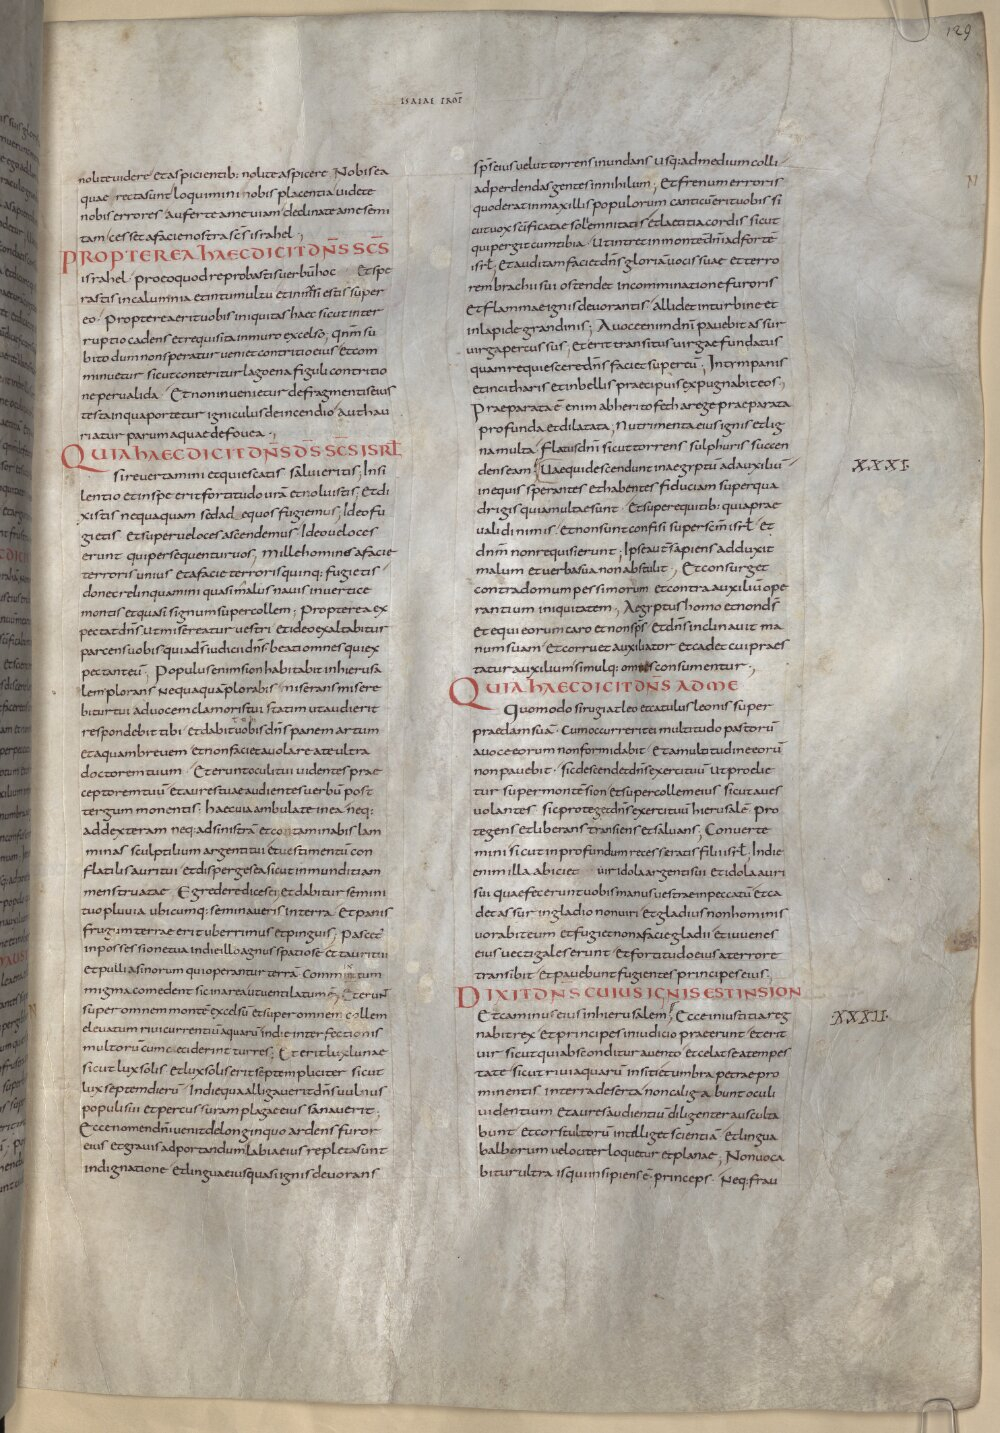 129
ISAIAE PROF̄
nolite videre et aspicientib: nolite aspicere Nobis ea
quae recta sunt loquimini nobis placentia videte
nobis errores Auferte a me viam declinate a me semi
tam cesset a facie nostra scs̄ israhel ;
PROPTEREA HAEC DICIT DN̄S SC̄S
israhel pro eo quod reprobastis verbū hoc Et spe
rastis in calumnia et in tumultu et innisi estis super
eo · Propterea erit vobis iniquitas haec sicut inter
ruptio cadens et requisita in muro excelso; qnm̄ su
bito dum non speratur veniet contritio eius Et com
minuetur sicut conteritur lagoena figuli contritio
ne pervalida · Et non invenietur de fragmentis eius
testa in qua portetur igniculus de incendio Aut hau
riatur parum aquae de fovea ;
QUIA HAEC DICIT DN̄S D̄S SC̄S ISRL̄
Si revertamini et quiescatis salvi eritis; In si
lentio et in spe erit fortitudo vrā et noluistis; Et di
xistis nequaquam sed ad equos fugiemus; Ideo fu
gietis Et super veloces ascendemus Ideo veloces
erunt qui persequentur vos; Mille homines a facie
terroris unius et a facie terroris quinq: fugietis
donec relinquamini quasi malus navis in vertice
montis et quasi signum super collem; Propterea ex
pectat dn̄s ut misereatur vestri et ideo exaltabitur
parcens vobis quia d̄s iudicii dn̄s beati omnes qui ex
pectant eū; Populus enim sion habitabit in hierusa
lem plorans nequaquā plorabis miserans misere
bitur tui ad vocem clamoris tui statim ut audierit
respondebit tibi Et dabit vobis dn̄s panem artum
et aquam brevem et non faciet avolare a te ultra
doctorem tuum · Et erunt oculi tui videntes prae
ceptorem tuū et aures tuae audientes verbū post
tergum monentis haec via ambulate in ea neq:
ad dexteram neq: ad sinistrā et contaminabis lam
minas sculptilium argenti tui et vestimentū con
flatilis auri tui et disperges ea sicut inmunditiam
menstruatae Egredere dices ei; et dabitur semini
tuo pluvia ubicumq: seminaveris in terra Et panis
frugum terrae erit uberrimus et pinguis; Pascet̄
in possessione tua in die illo agnus spatiose et tauri tui
et pulli asinorum qui operantur terrā Commixtum
migma comedent sicut in area ut ventilatum ē; Et erunt̄
super omnem montē excelsū et super omnem collem
elevatum rivi currentiū aquarū in die interfectionis
multorū cum ceciderint turres; Et erit lux lunae
sicut lux solis et lux solis erit septempliciter sicut
lux septem dierū In die qua alligaverit dn̄s vulnus
populi sui et percussuram plagae eius sanaverit;
Ecce nomen dn̄i venit de longinquo ardens furor
eius et gravis ad portandum labia eius repleta sunt
indignatione et lingua eius quasi ignis devorans
sps̄ eius velut torrens inundans usq: ad medium colli
ad perdendas gentes in nihilum; Et frenum erroris
quod erat in maxillis populorum canticū erit vobis si
cut vox scīficatae solemnitatis et laetitia cordis sicut
qui pergit cum tibia Ut intret in montē dn̄i ad fortē
isrl̄ Et auditam faciet dn̄s gloriā vocis suae et terro
rem brachii sui ostendet in comminatione furoris
et flamma ignis devorantis Allidet in turbine et
in lapide grandinis; A voce enim dn̄i pavebit assur
virga percussus; et erit transitus virgae fundatus
quam requiescere dn̄s faciet super eū; In tympanis
et in citharis et in bellis praecipuis expugnabit eos;
Praeparata ē enim ab heri tofeth a rege praeparata
profunda et dilatata; Nutrimenta eius ignis et lig
na multa Flatus dn̄i sicut torrens sulphuris succen
dens eam; Vae qui descendunt in aegyptū ad auxiliū
XXXI·
in equis sperantes et habentes fiduciam super qua
drigis quia multae sunt Et super equitib: quia prae
validi nimis Et non sunt confisi super scm̄ isrl̄ Et
dnm̄ non requisierunt; Ipse autē sapiens adduxit
malum et verba sua non abstulit; Et consurget
contra domum pessimorum et contra auxiliū ope
rantium iniquitatem; Aegyptus homo et non d̄s
et equi eorum caro et non sps̄ Et dn̄s inclinavit ma
num suam Et corruet auxiliator et cadet cui praes
tatur auxilium simulq: omnes consumentur;
QUIA HAEC DICIT DN̄S AD ME
Quomodo si rugiat leo et catulus leonis super
praedam suā Cum occurrerit ei multitudo pastorū
a voce eorum non formidabit Et a multitudine eorū
non pavebit · sic descendet dn̄s exercituū Ut proelie
tur super monte sion et super collem eius sicut aves
volantes sic proteget dn̄s exercituū hierusalē Pro
tegens et liberans transiens et salvans; Converte
mini sicut in profundum recesseratis filii isrl̄; In die
enim illa abiciet vir idola argenti sui et idola auri
sui quae fecerunt vobis manus vestrae in peccatū Et ca
det assur in gladio non viri Et gladius non hominis
vorabit eum Et fugiet non a facie gladii Et iuvenes
eius vectigales erunt Et fortitudo eius a terrore
transibit Et pavebunt fugientes principes eius;
DIXIT DN̄S CUIUS IGNIS EST IN SION
Et caminus eius in hierusalem; Ecce in iustitia reg
XXXII·
nabit rex Et principes in iudicio praeerunt et erit
vir sicut qui absconditur a vento et celat se a tempes
tate sicut rivi aquarū in siti et umbra petrae pro
minentis in terra deserta non caligabunt oculi
videntium Et aures audientiū diligenter ausculta
bunt Et cor stultorū intelliget scientiā Et lingua
balborum velociter loquetur et plane; Non voca
bitur ultra is qui insipiens ē princeps Neq: frau